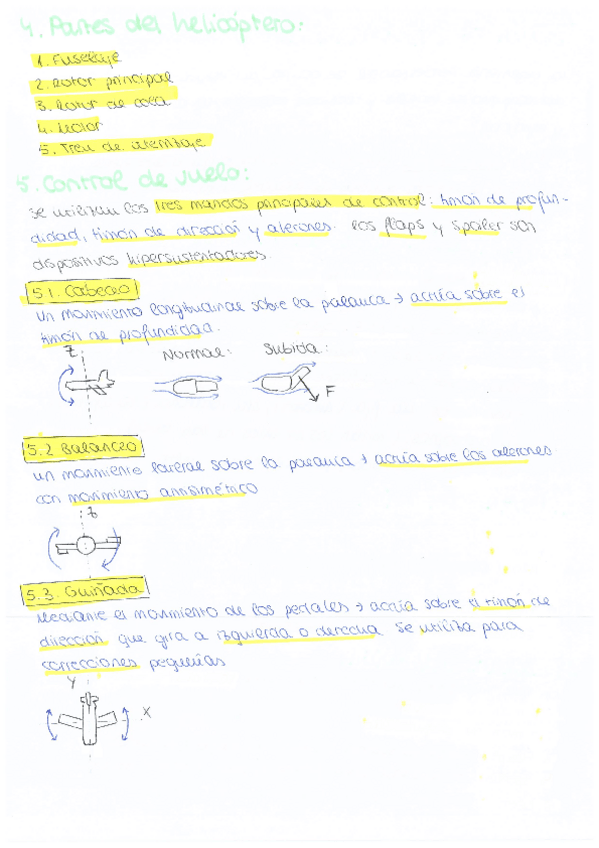 4. Partes del helicóptero:
1. Fuselaje
2. Rotor principal
3. Rotor de cola
4. Motor
5. Tren de aterrizaje
5. Control de vuelo:
Se utilizan los tres mandos principales de control: timón de profun-
didad, timón de dirección y alerones. Los flaps y spoiler son
dispositivos hipersustentadores.
5.1. Cabeceo
Un movimiento longitudinal sobre la palanca → actúa sobre el
timón de profundidad.
Z
Normal: Subida:
F
5.2 Balanceo
Un movimiento lateral sobre la palanca → actúa sobre los alerones
con movimiento antisimétrico
Z
5.3. Guiñada
Mediante el movimiento de los pedales → actúa sobre el timón de
dirección que gira a izquierda o derecha. Se utiliza para
correcciones pequeñas
Y
X